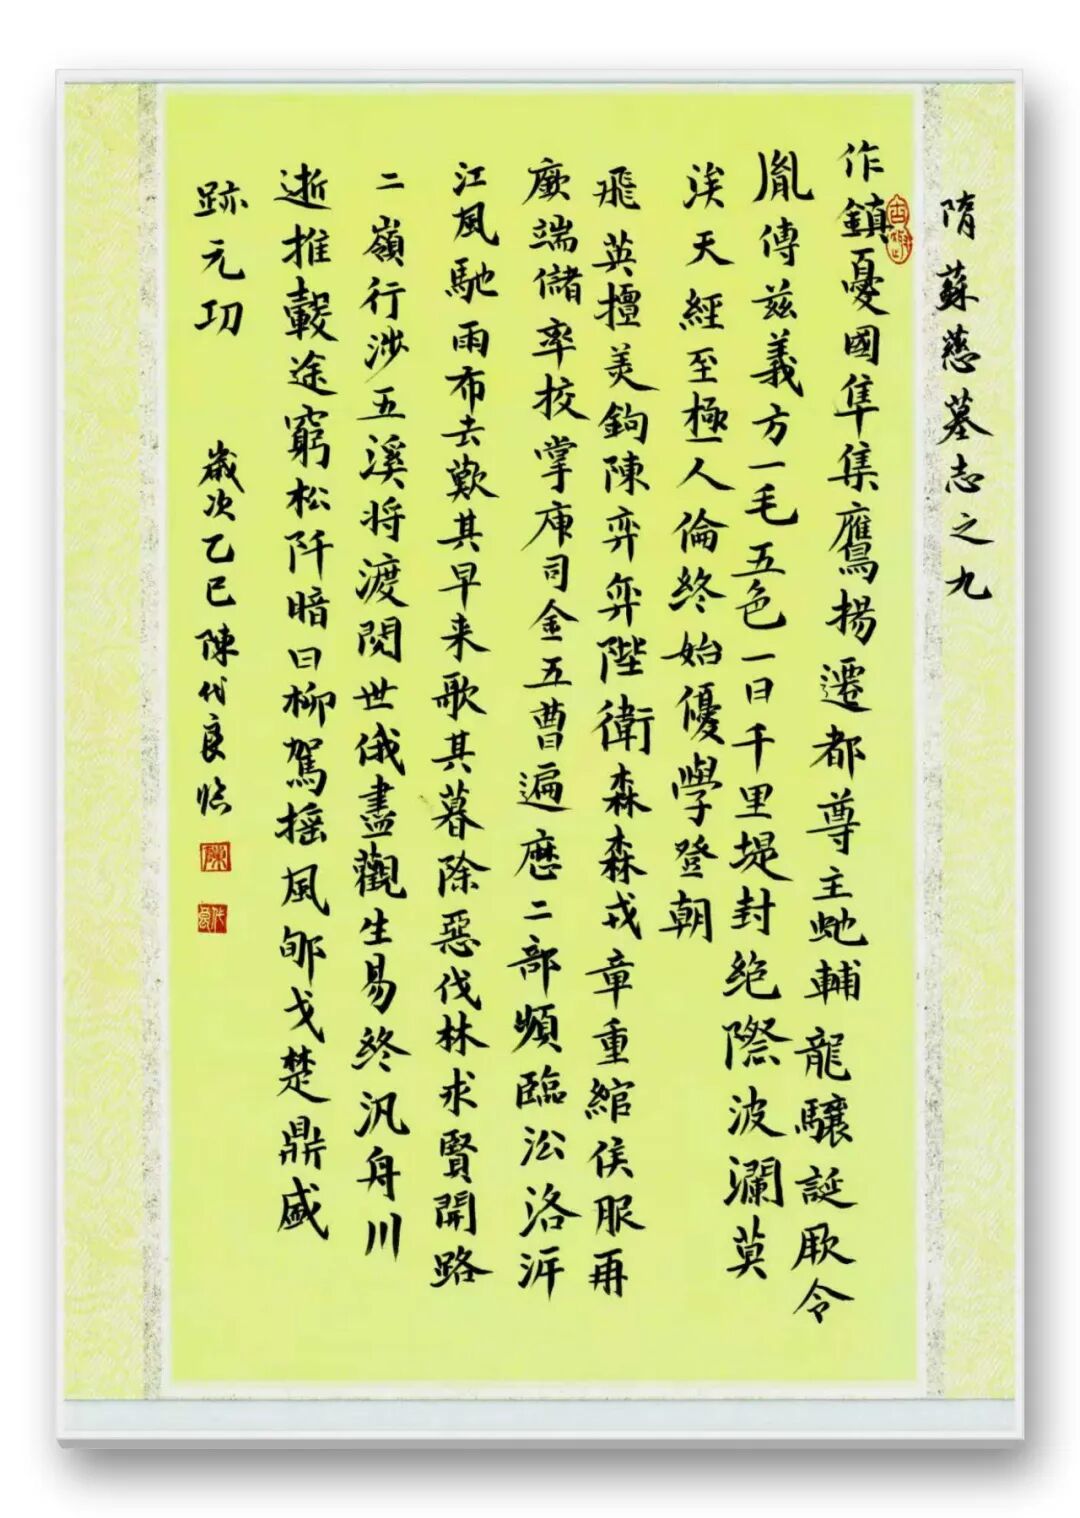 隋蘇慈墓志之九
作鎮憂國隼集鷹揚遷都尊主虵輔龍驤誕厥令
胤傳茲義方一毛五色一日千里堤封絕際波瀾莫
涘天經至極人倫終始優學登朝
飛英擅美鉤陳弈弈陛衛森森戎章重綰侯服再
廞端儲率校掌庾司金五曹遍歷二部頻臨沿洛泝
江風馳雨布去歎其早来歌其暮除惡伐林求賢開路
二嶺行涉五溪将渡閱世俄盡觀生易終汎舟川
逝推轂途窮松阡暗日柳駕摇風郇戈楚鼎盛
跡元功
歲次乙巳陳代良臨